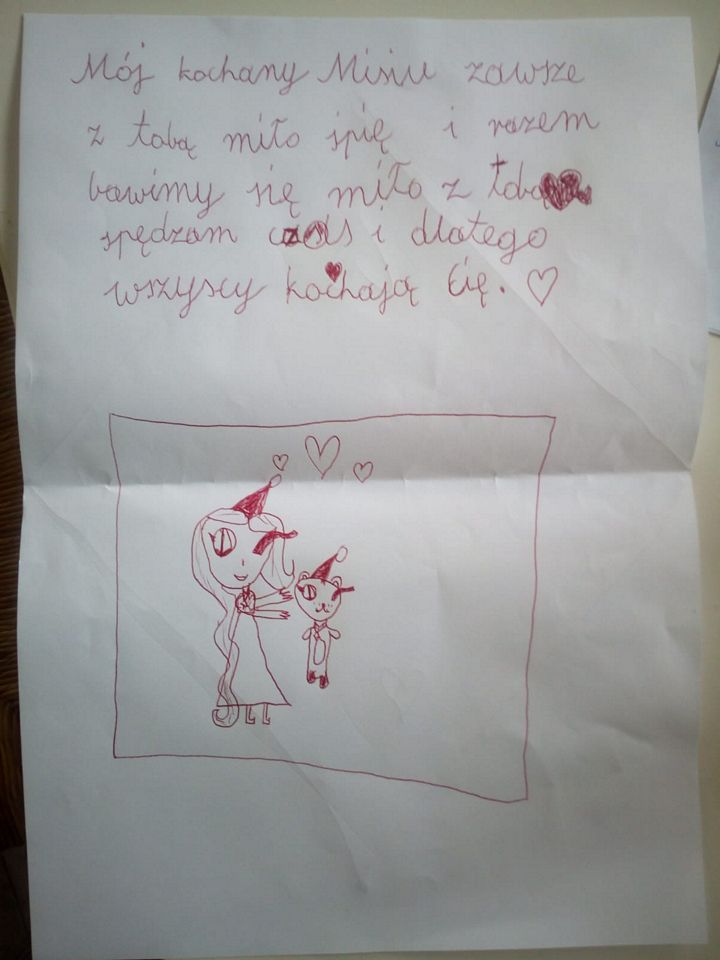 Mój kochany Misiu zawsze
z tobą miło śpię i razem
bawimy się miło z tobą
spędzam czas i dlatego
wszyscy kochają Cię.